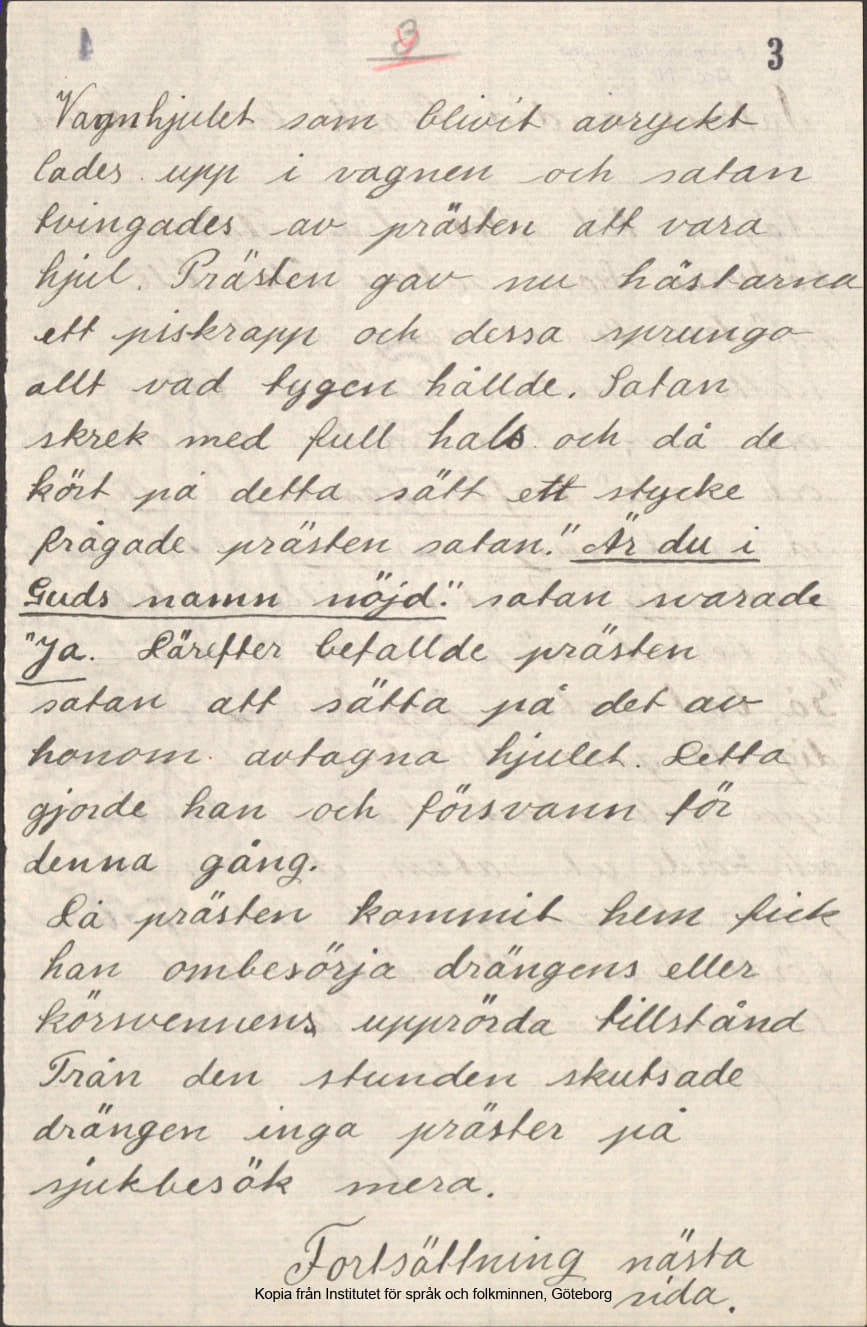 3 3
Vagnhjulet som blivit avryckt
lades upp i vagnen och satan
tvingades av prästen att vara
hjul. Prästen gav nu hästarna
ett piskrapp och dessa sprungo
allt vad tygen hållde. Satan
skrek med full hals och då de
kört på detta sätt ett stycke
frågade prästen satan." Är du i
Guds namn nöjd." satan svarade
"Ja. Därefter befallde prästen
satan att sätta på det av
honom avtagna hjulet. Detta
gjorde han och försvann för
denna gång.
Då prästen kommit hem fick
han ombesörja drängens eller
körsvennens upprörda tillstånd
Från den stunden skutsade
drängen inga präster på
sjukbesök mera.
Fortsättning nästa
sida.
Kopia från Institutet för språk och folkminnen, Göteborg